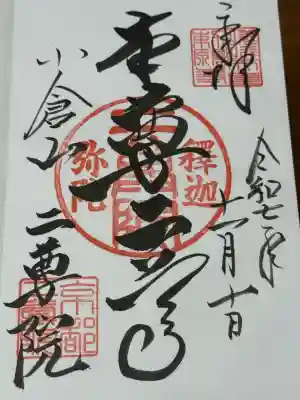 奉拝
令和七年
十一月十日
本尊二尊
釋迦
弥陀
小倉山 二尊院
京都